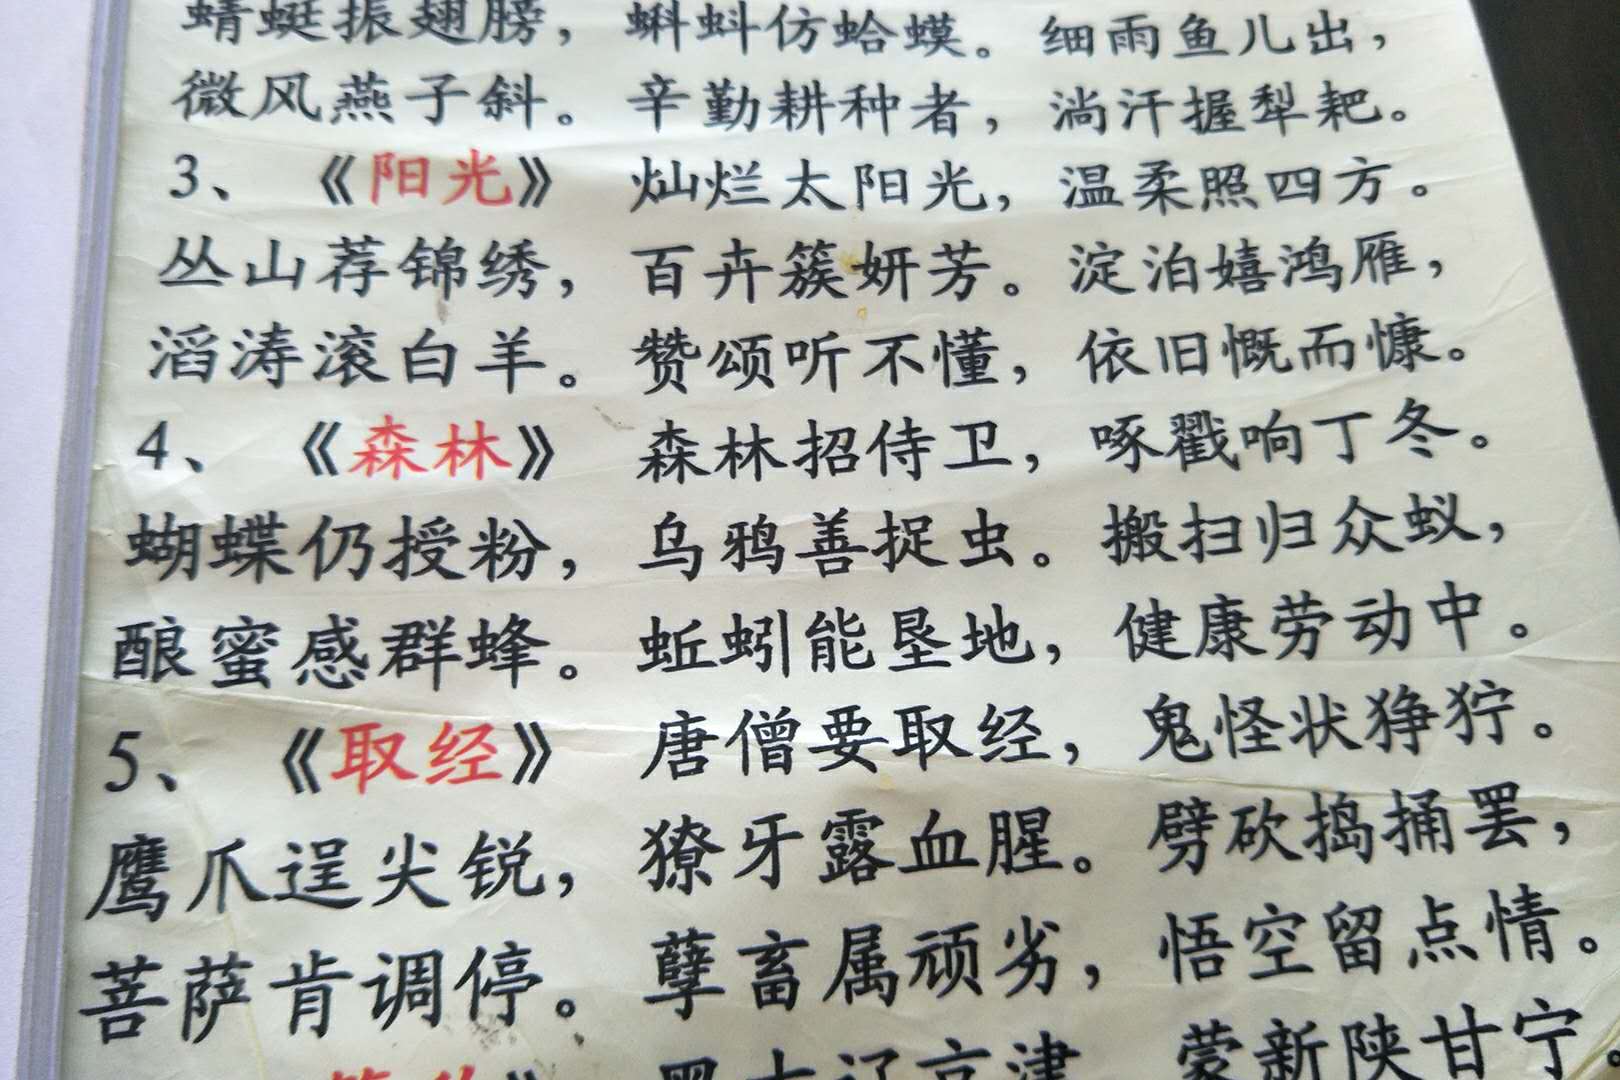 蜻蜓振翅膀，蝌蚪仿蛤蟆。细雨鱼儿出，
微风燕子斜。辛勤耕种者，淌汗握犁耙。
3、《阳光》 灿烂太阳光，温柔照四方。
丛山荐锦绣，百卉簇妍芳。淀泊嬉鸿雁，
滔涛滚白羊。赞颂听不懂，依旧慨而慷。
4、《森林》 森林招侍卫，啄戳响丁冬。
蝴蝶仍授粉，乌鸦善捉虫。搬扫归众蚁，
酿蜜感群蜂。蚯蚓能垦地，健康劳动中。
5、《取经》 唐僧要取经，鬼怪状狰狞。
鹰爪逞尖锐，獠牙露血腥。劈砍捣捅罢，
菩萨肯调停。孽畜属顽劣，悟空留点情。
》 黑吉辽京津 蒙新陕甘宁。